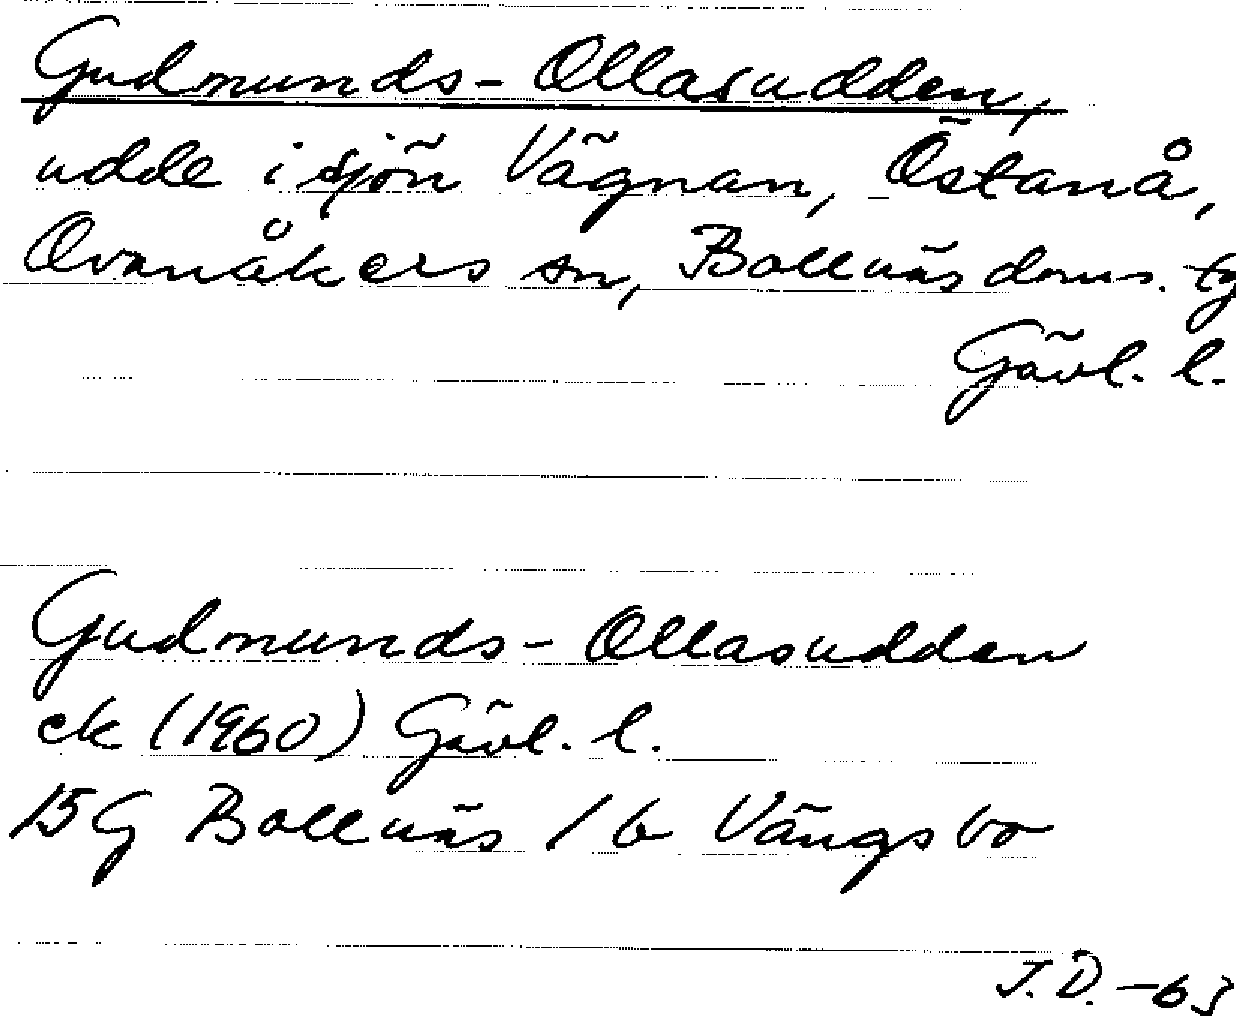 Gudmunds-Ollasudden,
udde i sjön Vägnan, Östanå,
Ovanåkers sn, Bollnäs doms. tg
Gävl. l.
Gudmunds-Ollasudden
ek (1960) Gävl. l.
15G Bollnäs 1b Vängsbo
J.D. -63